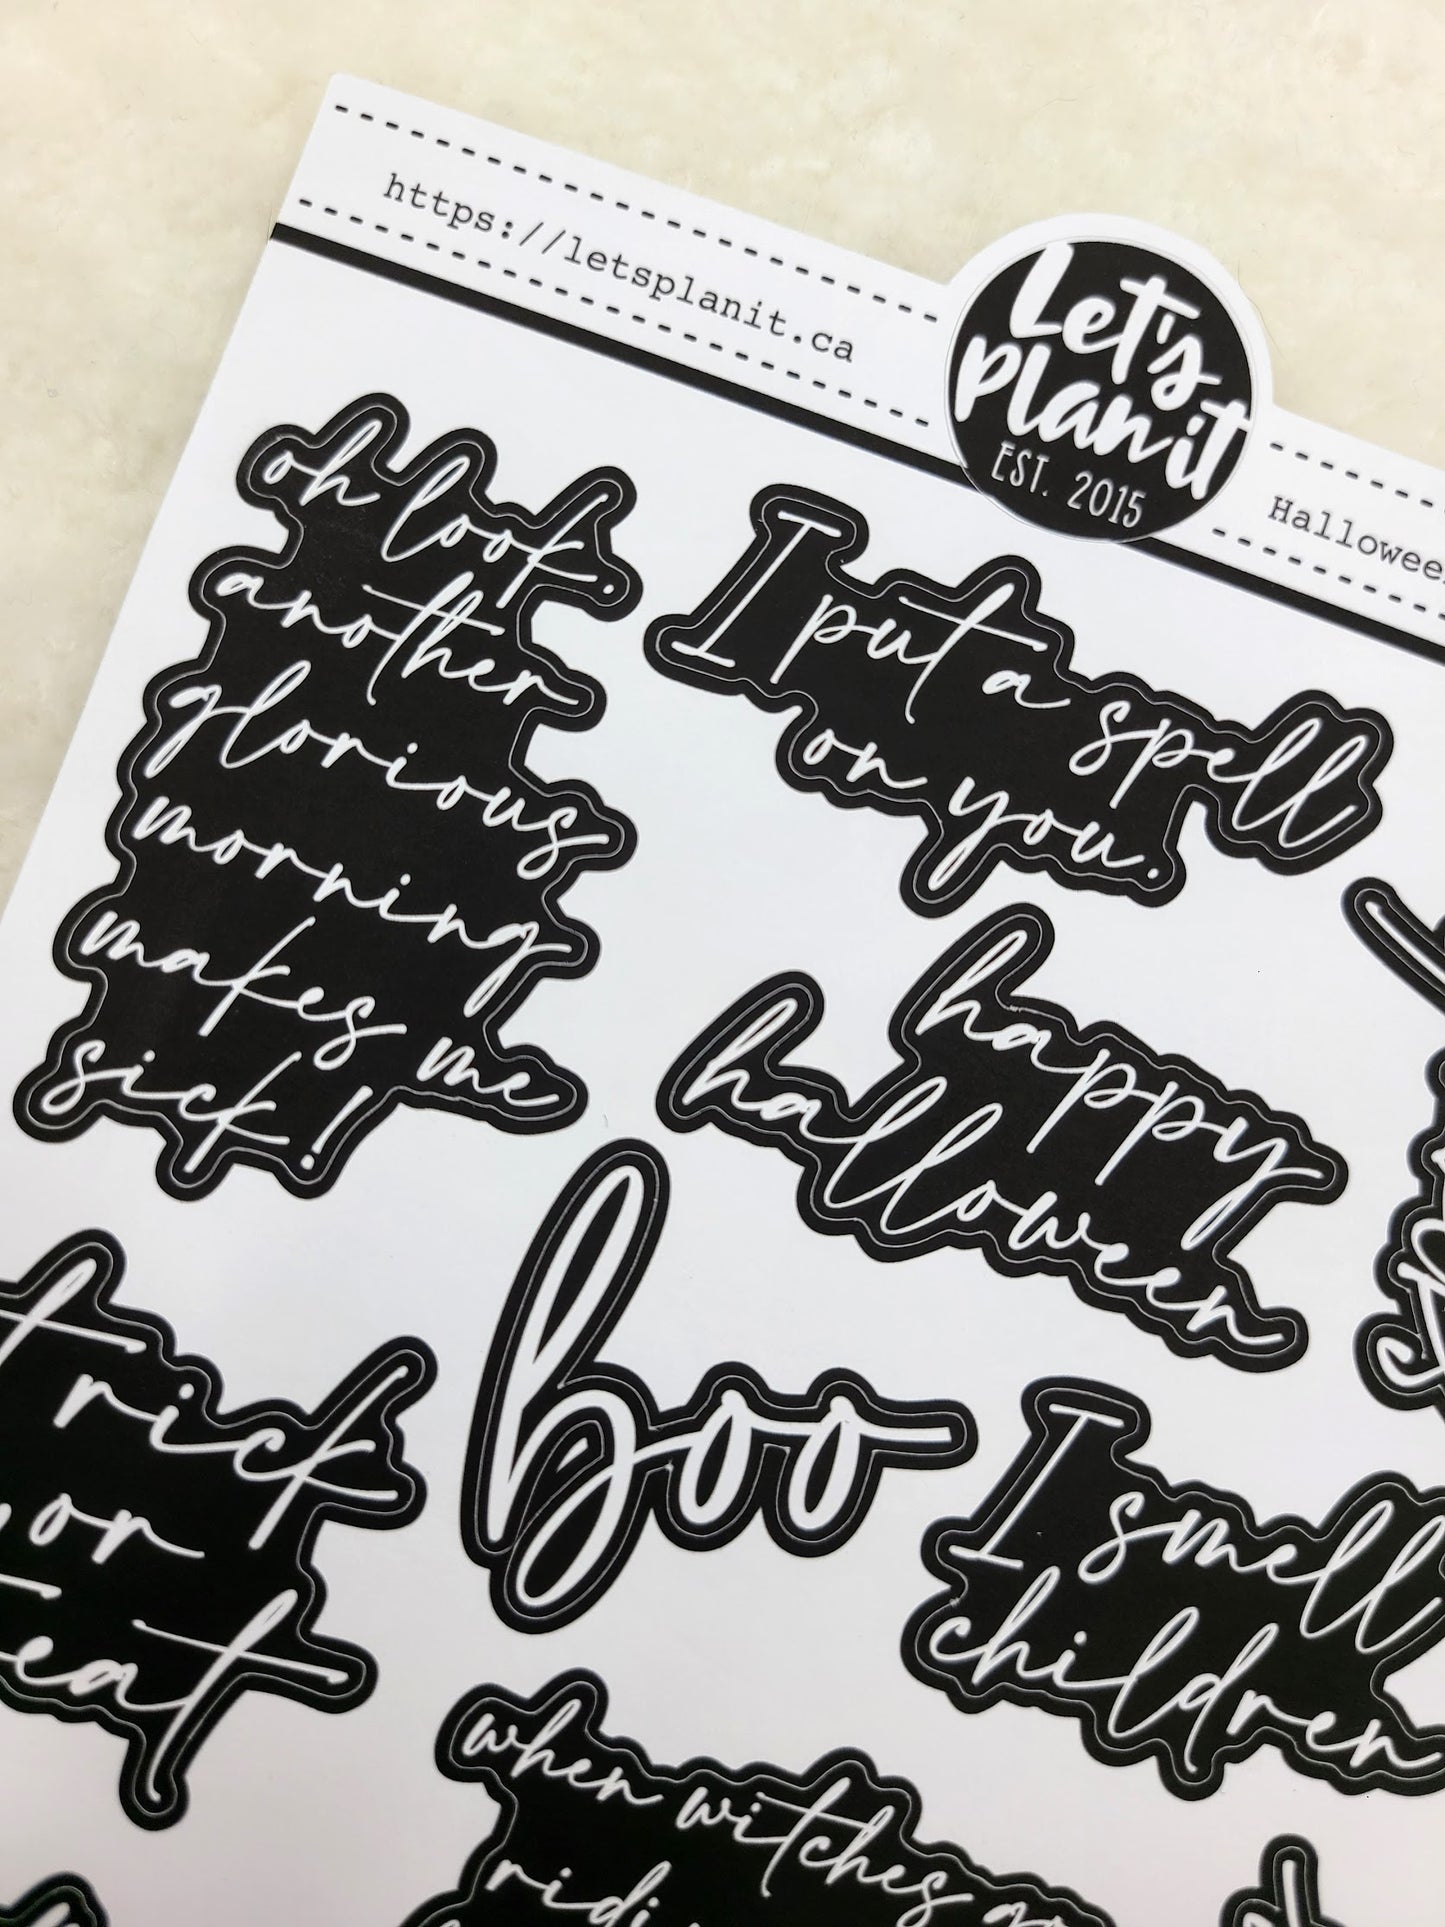 https://letsplanit.ca
Let's
Plan it
EST. 2015
oh look.
another
glorious
morning
makes me
sick!
I put a spell
on you.
happy
halloween
trick
, or
treat
boo
I smell
children
when witches